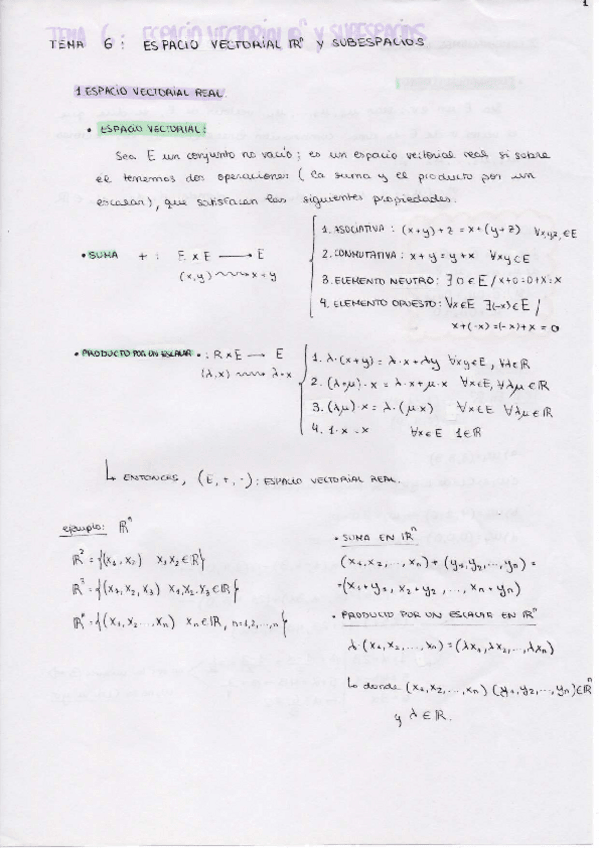 1
TEMA 6: ESPACIO VECTORIAL ℝⁿ y SUBESPACIOS
1 ESPACIO VECTORIAL REAL.
• ESPACIO VECTORIAL:
Sea E un conjunto no vacío; es un espacio vectorial real si sobre
el tenemos dos operaciones (la suma y el producto por un
escalar), que satisfacen las siguientes propiedades:
• SUMA + : E x E → E
(x,y) ⟿ x+y
1. ASOCIATIVA: (x+y)+z = x+(y+z) ∀x,y,z ∈E
2. CONMUTATIVA: x+y = y+x ∀x,y ∈E
3. ELEMENTO NEUTRO: ∃ 0 ∈ E / x+0=0+x=x
4. ELEMENTO OPUESTO: ∀x∈E ∃(-x)∈E /
x+(-x)=(-x)+x = 0
• PRODUCTO POR UN ESCALAR • : R x E → E
(λ,x) ⟿ λ·x
1. λ·(x+y) = λ·x + λy ∀x,y∈E, ∀λ∈ℝ
2. (λ+μ)·x = λ·x+μ·x ∀x∈E, ∀λ,μ∈ℝ
3. (λμ)·x = λ·(μ·x) ∀x∈E ∀λ,μ∈ℝ
4. 1·x = x ∀x∈E 1∈ℝ
↳ ENTONCES, (E, +, ·): ESPACIO VECTORIAL REAL.
ejemplo: ℝⁿ
ℝ² = {(x₁, x₂) x₁,x₂∈ℝ}
ℝ³ = {(x₁, x₂, x₃) x₁,x₂,x₃∈ℝ}
ℝⁿ = {(x₁, x₂...,xₙ) xₙ∈ℝ, n=1,2,...,n}
• SUMA EN ℝⁿ
(x₁,x₂,...,xₙ)+(y₁,y₂,...,yₙ) =
=(x₁+y₁, x₂+y₂,..., xₙ+yₙ)
• PRODUCTO POR UN ESCALAR EN ℝⁿ
λ·(x₁,x₂,...,xₙ)=(λx₁,λx₂,...,λxₙ)
↳ donde (x₁,x₂,...,xₙ) (y₁,y₂,...,yₙ)∈ℝⁿ
y λ∈ℝ.